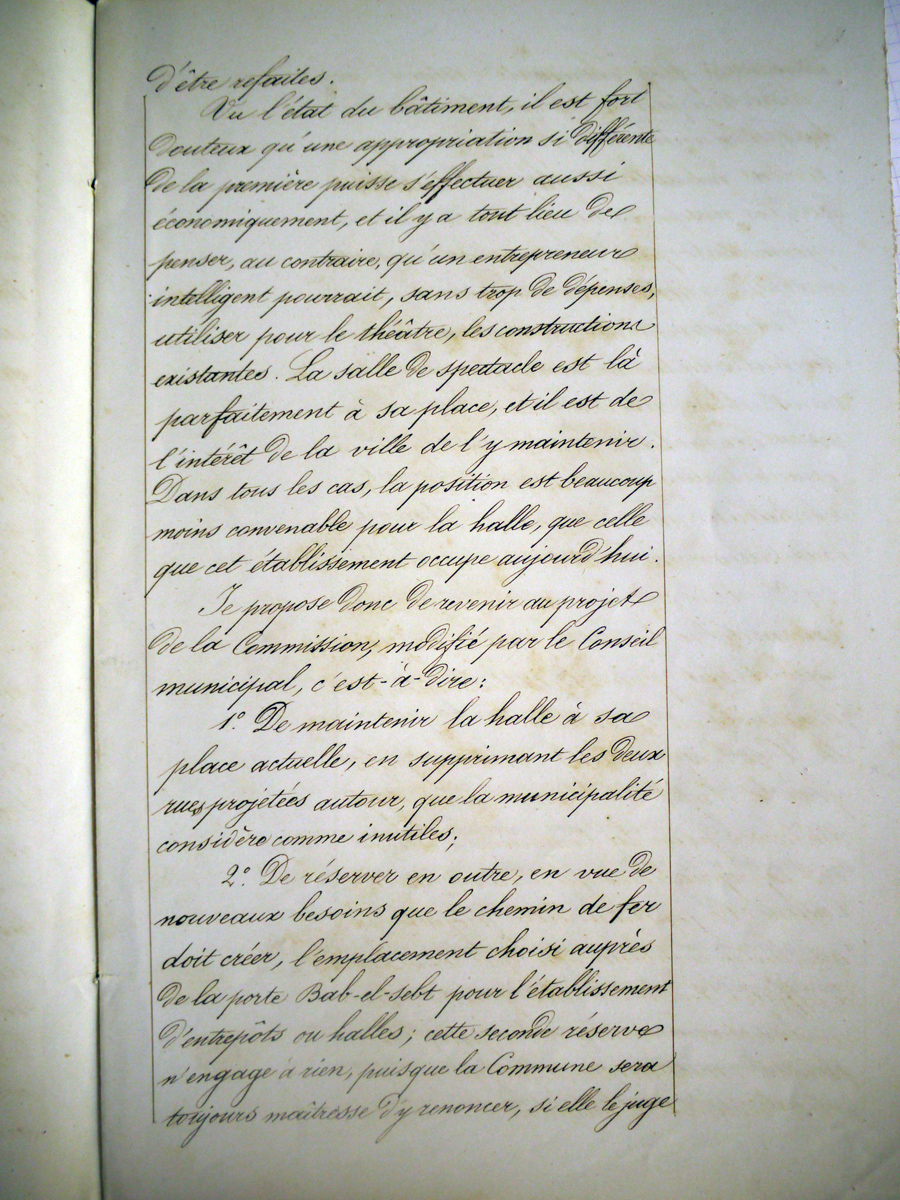 d'être refaites.
Vu l'état du bâtiment, il est fort
douteux qu'une appropriation si différente
de la première puisse s'effectuer aussi
économiquement, et il y a tout lieu de
penser, au contraire, qu'un entrepreneur
intelligent pourrait, sans trop de dépenses,
utiliser pour le théâtre, les constructions
existantes. La salle de spectacle est là
parfaitement à sa place, et il est de
l'intérêt de la ville de l'y maintenir.
Dans tous les cas, la position est beaucoup
moins convenable pour la halle, que celle
que cet établissement occupe aujourd'hui.
Je propose donc de revenir au projet
de la Commission, modifié par le Conseil
municipal, c'est-à-dire:
1° De maintenir la halle à sa
place actuelle, en supprimant les deux
rues projetées autour, que la municipalité
considère comme inutiles;
2° De réserver en outre, en vue de
nouveaux besoins que le chemin de fer
doit créer, l'emplacement choisi auprès
de la porte Bab-el-sebt pour l'établissement
d'entrepôts ou halles; cette seconde réserve
n'engage à rien, puisque la Commune sera
toujours maîtresse d'y renoncer, si elle le juge